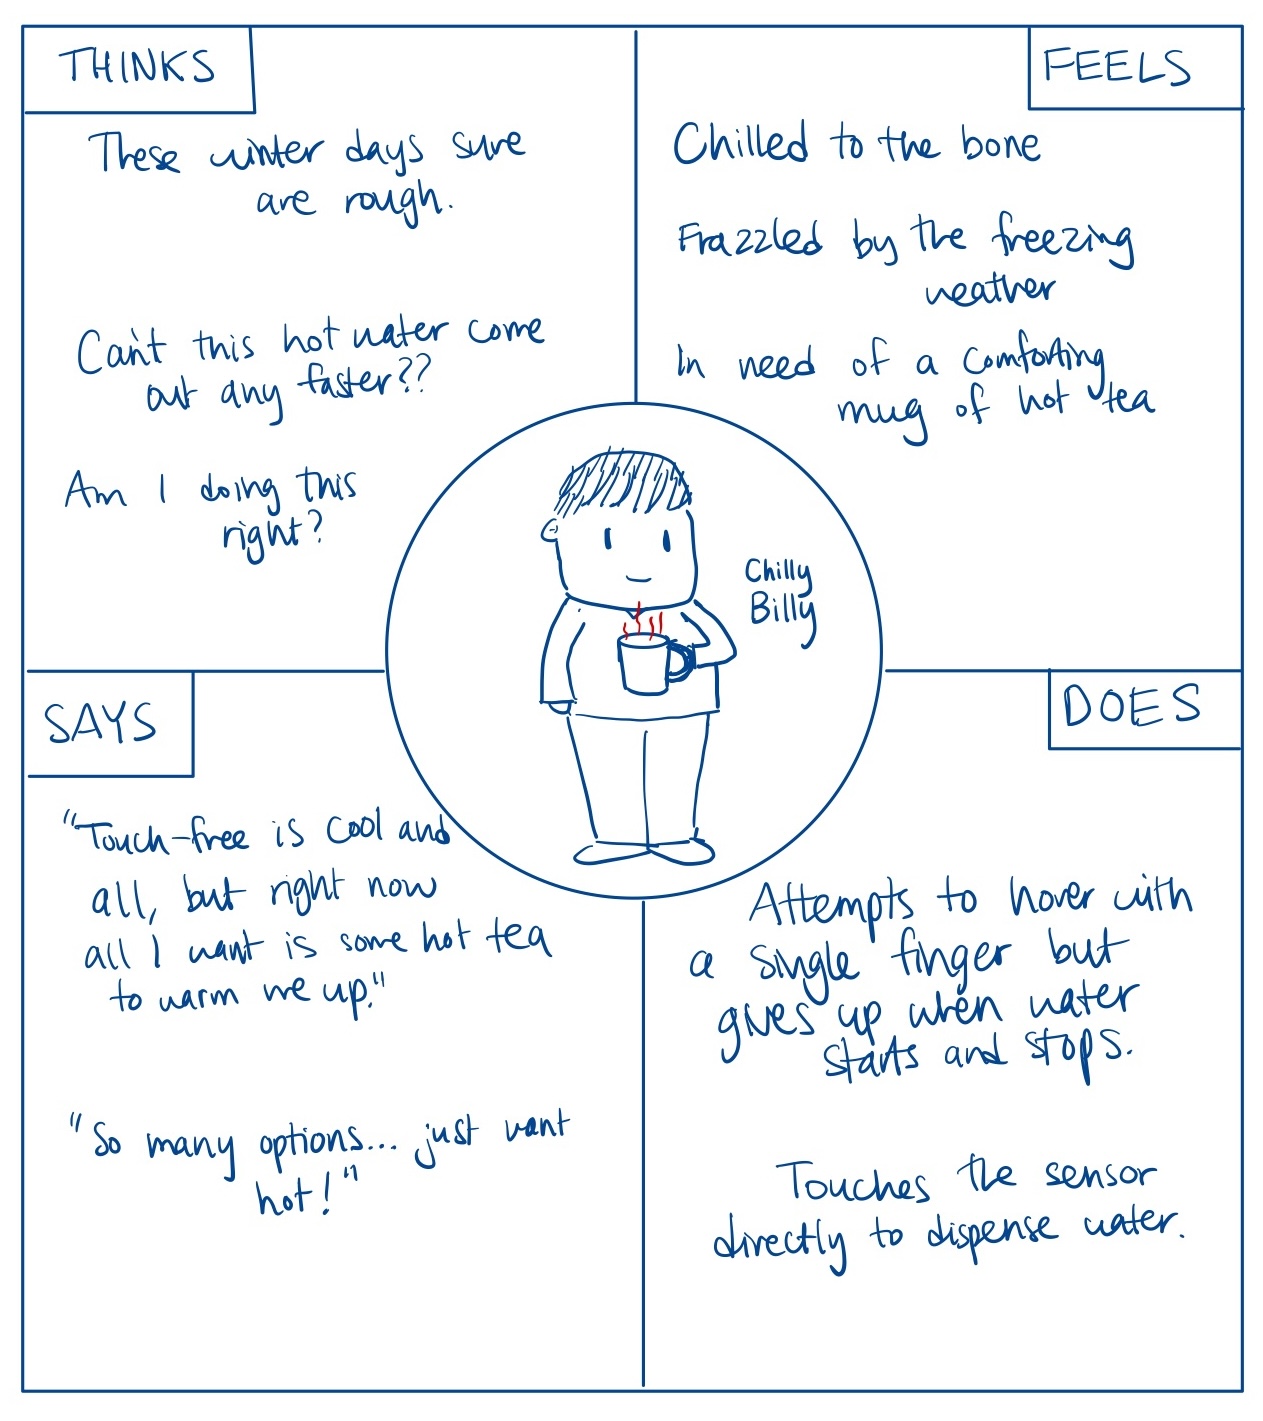 THINKS
These winter days sure
are rough.
Can't this hot water come
out any faster??
Am I doing this
right?
FEELS
Chilled to the bone
Frazzled by the freezing
weather
In need of a comforting
mug of hot tea
Chilly
Billy
SAYS
"Touch-free is cool and
all, but right now
all I want is some hot tea
to warm me up."
"So many options... just want
hot!"
DOES
Attempts to hover with
a single finger but
gives up when water
starts and stops.
Touches the sensor
directly to dispense water.